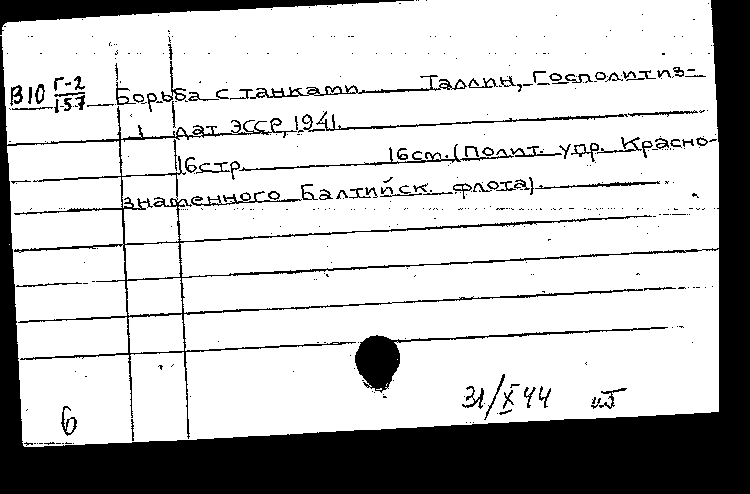 В10 Г-2/157 Борьба с танками. Таллин, Госполитиз-
1 дат ЭССР, 1941.
16стр. 16см. (Полит. упр. Красно-
знаменного Балтийск. флота).
31/X 44
б